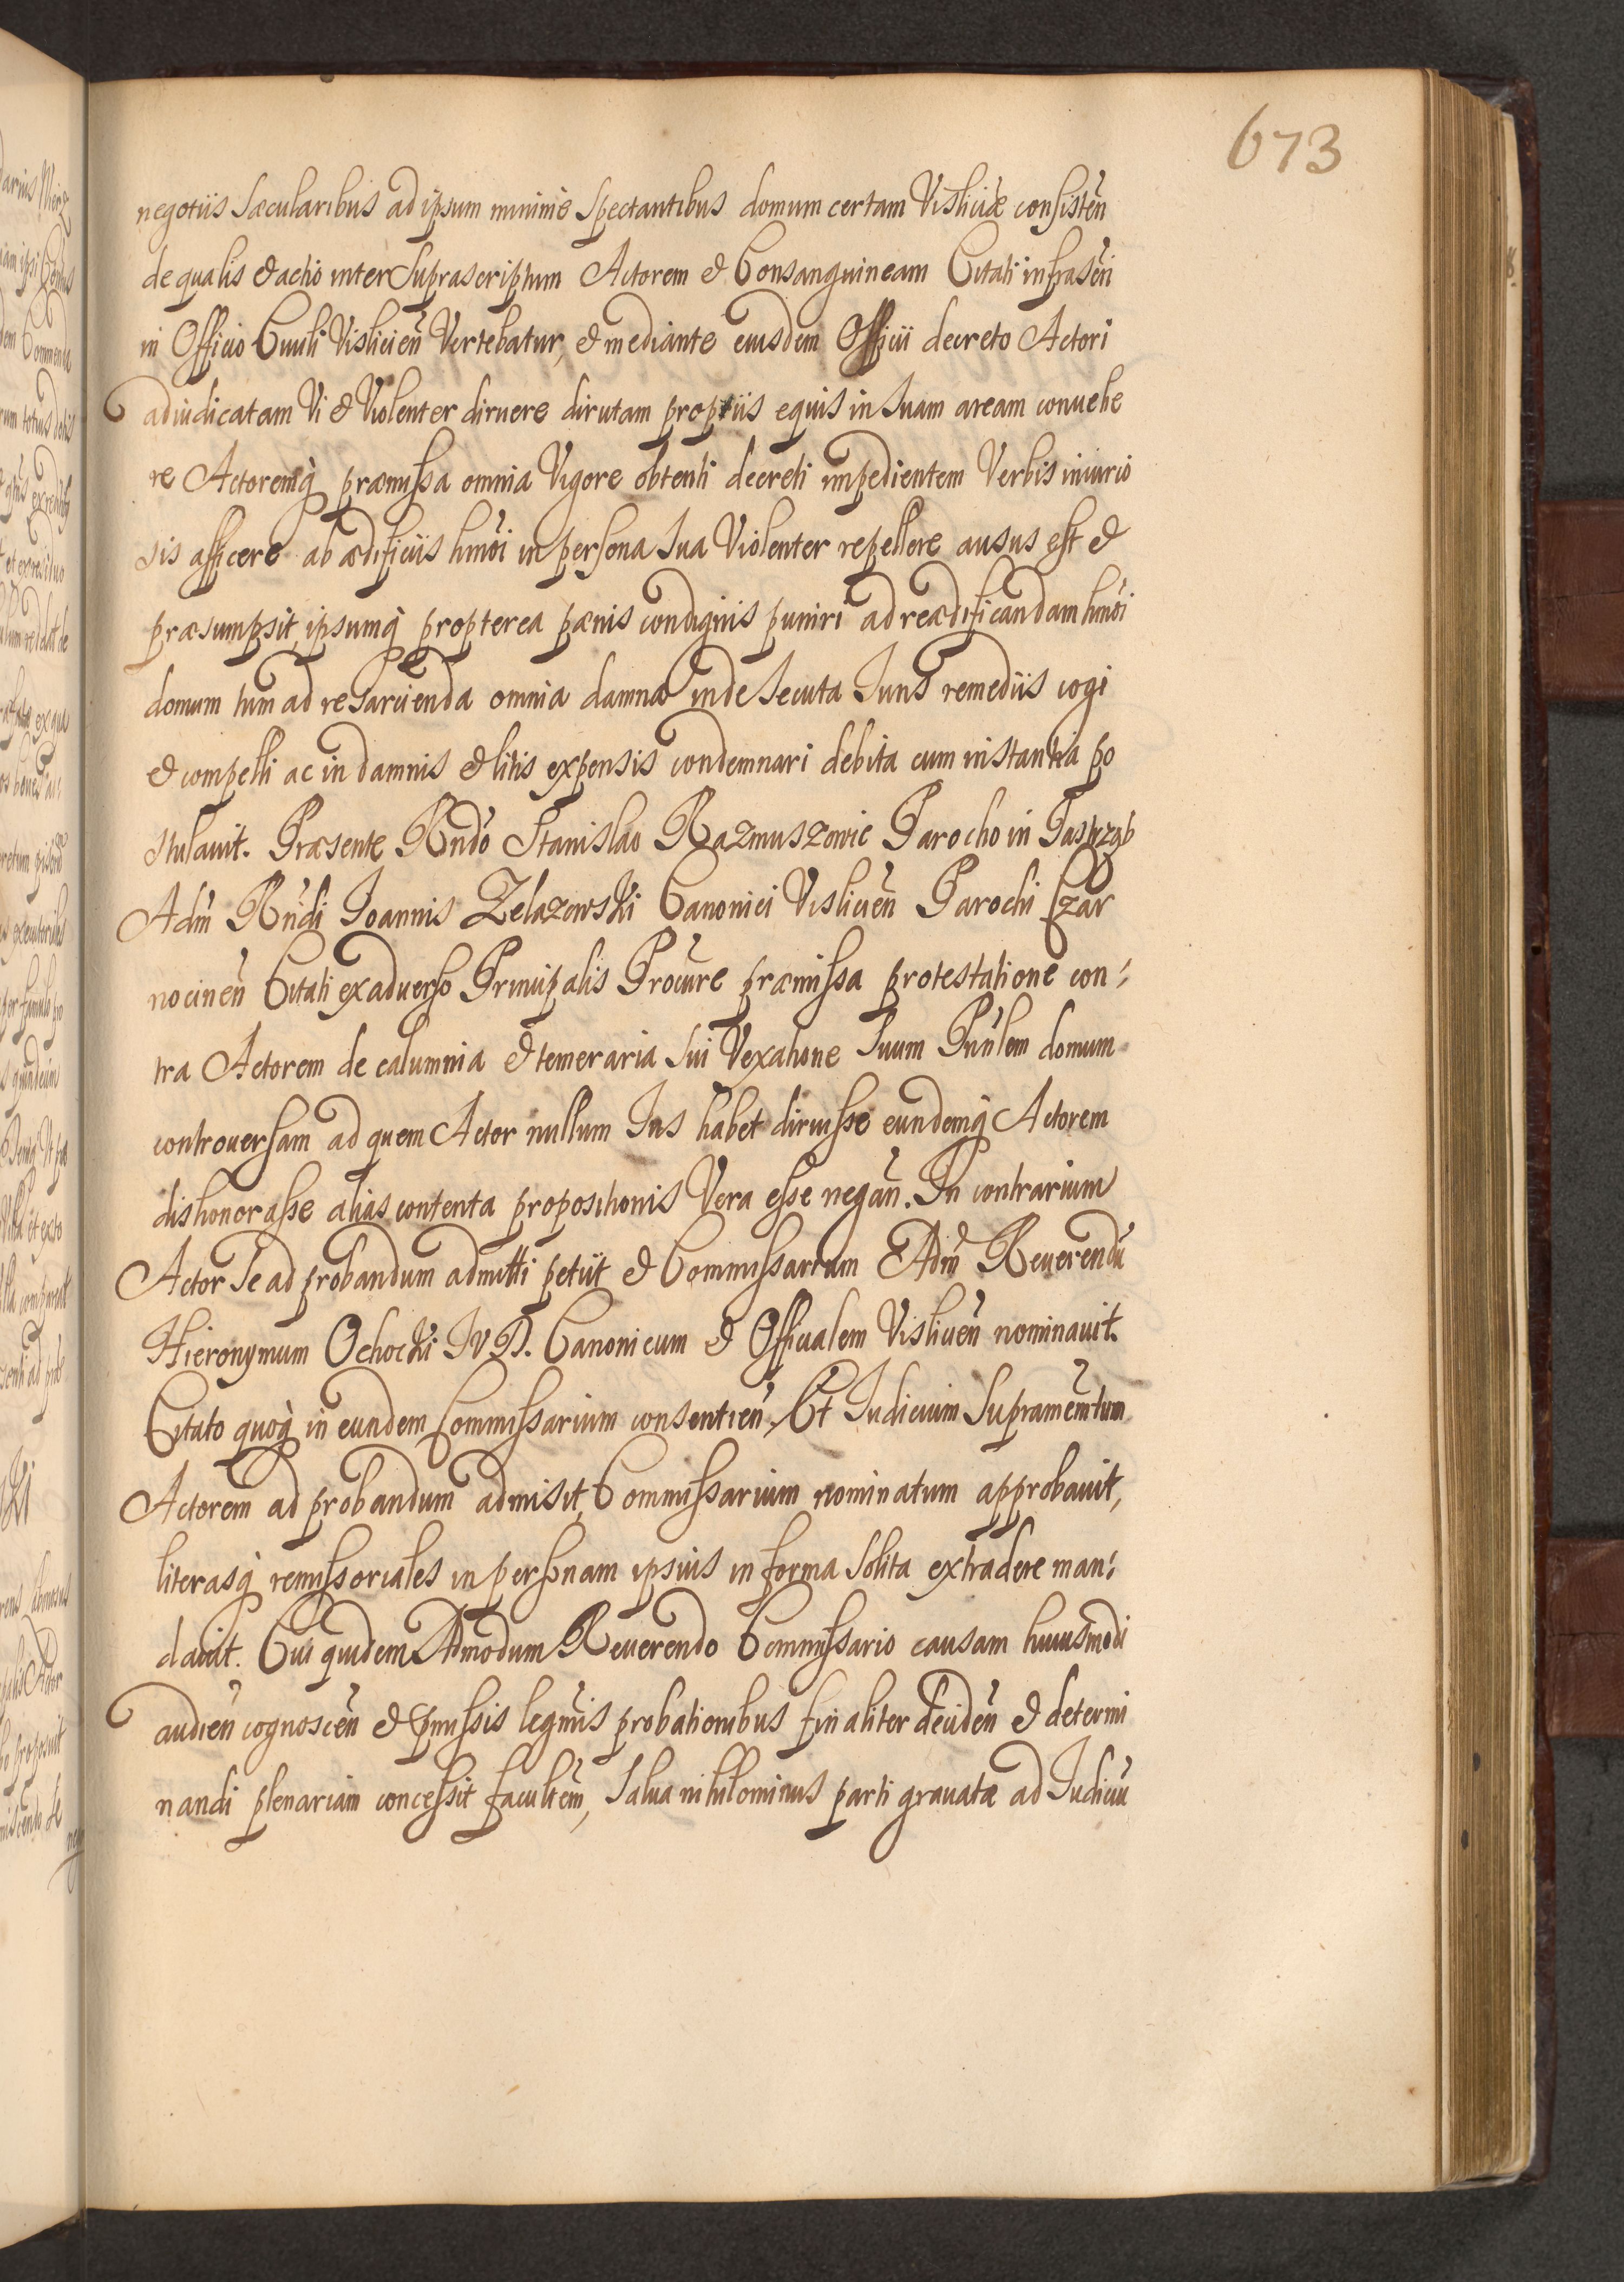 673
negotiis Sæcularibus ad ipsum minime Spectantibus domum certam Visliciæ consistēn
de qua lis & actio inter Suprascriptum Actorem & Consanguineam Citati infrascri
in Officio Civili Vislicien̄ Vertebatur, & mediante eiusdem Officii decreto Actori
adiudicatam Vi & Violenter diruere dirutam propriis equis in Suam aream convehe
re Actoremq̀ præmissa omnia Vigore obtenti decreti impedientem Verbis iniurio
sis afficere ab ædificiis hmōi in persona Sua Violenter repellere ausus est &
præsumpsit, ipsumq̀ propterea pænis condignis puniri ad reædificandam hmōi
domum tum ad resarcienda omnia damna inde Secuta Iuris remediis cogi
& compelli ac in damnis & litis expensis condemnari debita cum instantia po
stulavit. Præsente Rndo Stanislao Razmuszowic Parocho in
Adm̄ Rńdi Ioannis Zelazowski Canonici Vislicien̄ Parochi Czar
nocinen̄ Citati ex adverso Principalis Procúre præmissa protestatione con:
tra Actorem de calumnia & temeraria Sui Vexatione Suum Prīnlem domum
controversam ad quem Actor nullum Ius habet diruisse eundemq̀ Actorem
dishonorasse alias contenta propositionis Vera esse negan̄. In contrarium
Actor Se ad probandum admitti petiit & Commissarium Adm̄ Reverendū
Hieronymum Ochocki IVD. Canonicum & Officialem Vislicen̄ nominavit.
Citato quoq̀ in eundem Commissarium consentien̄. Et Iudicium Supramemtum
Actorem ad probandum admisit, Commissarium nominatum approbavit,
literasq̀ remissoriales in personam ipsius in forma Solita extradere man:
davit. Cui quidem Admodum Reverendo Commissario causam huiusmodi
audien̄ cognoscen̄ & pmissis legmīs probationibus finaliter deciden̄ & determi
nandi plenariam concessit facultem̄, Salva nihilominus parti gravatæ ad Iudiciū